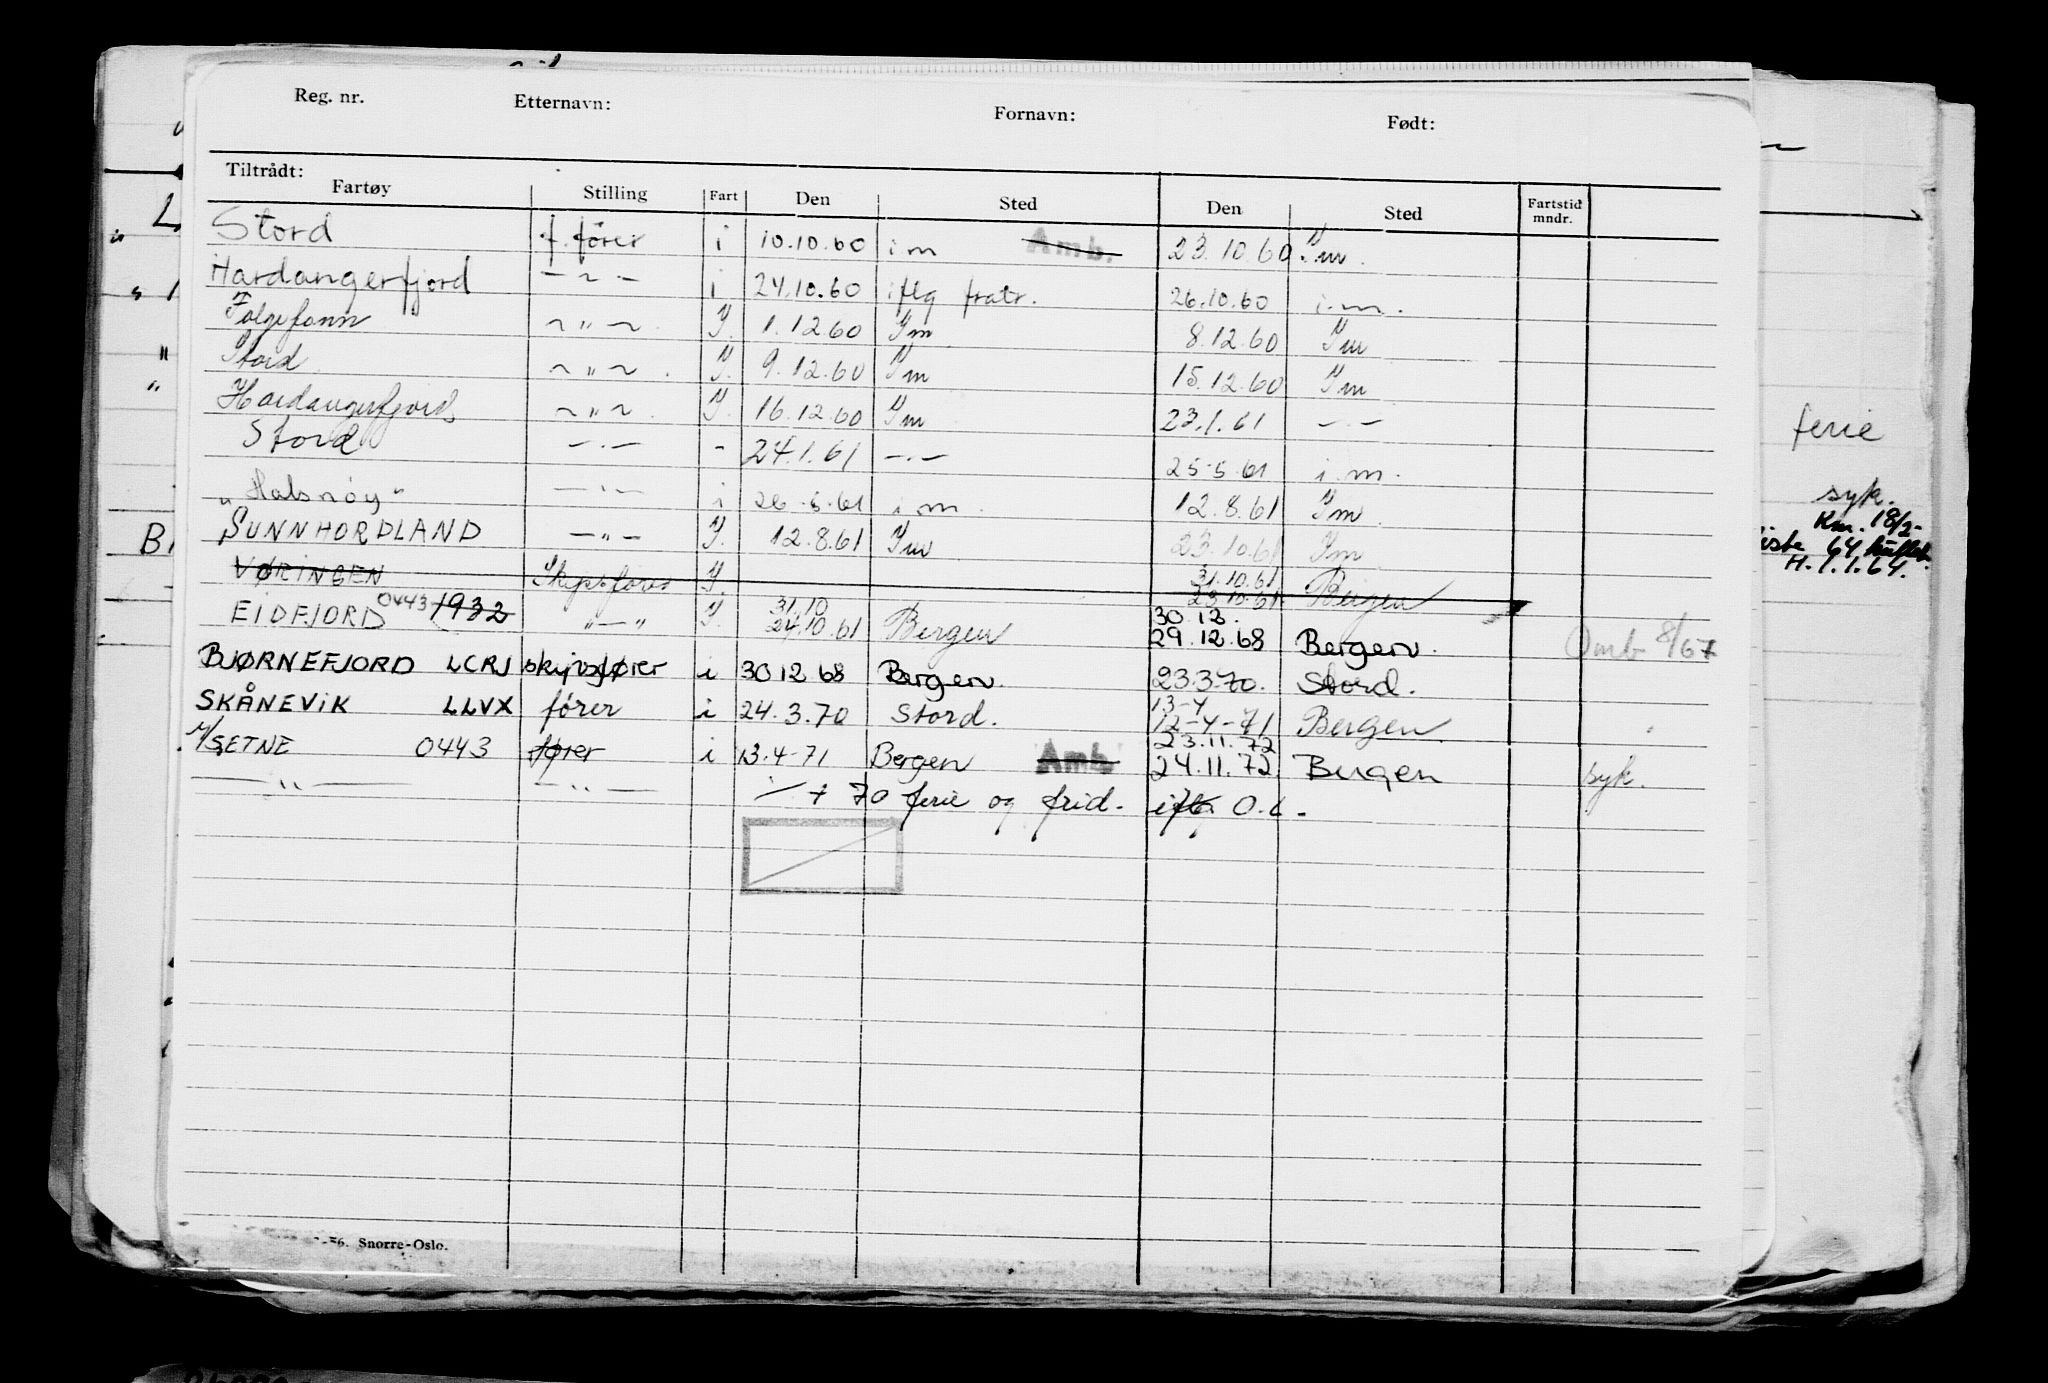 Reg. nr. Etternavn: Fornavn: Født:
Tiltrådt:
Fartøy Stilling Fart Den Sted Den Sted Fartstid mndr.
Stord f. fører i 10.10.60 i m Amb. 23.10.60 Im.
Hardangerfjord -~- i 24.10.60 iflg fratr. 26.10.60 i.m.
Folgefonn ~"~ I. 1.12.60 Im 8.12.60 Im
Stord ~"~ I. 9.12.60 Im 15.12.60 Im
Hardangerfjord ~"~ I. 16.12.60 Im 23.1.61 -"-
Stord -"- - 24.1.61 -"- 25-5.61 i.m.
"Halsnøy" -"- i 26-5.61 i m. 12.8.61 Im
SUNNHORDLAND -"- I. 12.8.61 Im 23.10.61 Im
VØRINGEN Skipsfører I. 31.10.61 23.10.61 Bergen
EIDFJORD 0443 1932 "-" I. 31.10 24.10.61 Bergen 30.12. 29.12.68 Bergen. Omb 8/67
BJØRNEFJORD LCRJ skipsfører i 30 12 68 Bergen 23.3.70. Stord.
SKÅNEVIK LLVX fører i 24.3.70 Stord. 13-4 12-4-71 Bergen
M/S ETNE 0443 fører i 13.4-71 Bergen Amb 23.11.72 24.11.72 Bergen syk.
-"- -"- + 70 ferie og frid. iflg. O.L.
ferie
syk.
Km. 18/2-
64
H. 1.1.64.
Snorre-Oslo.